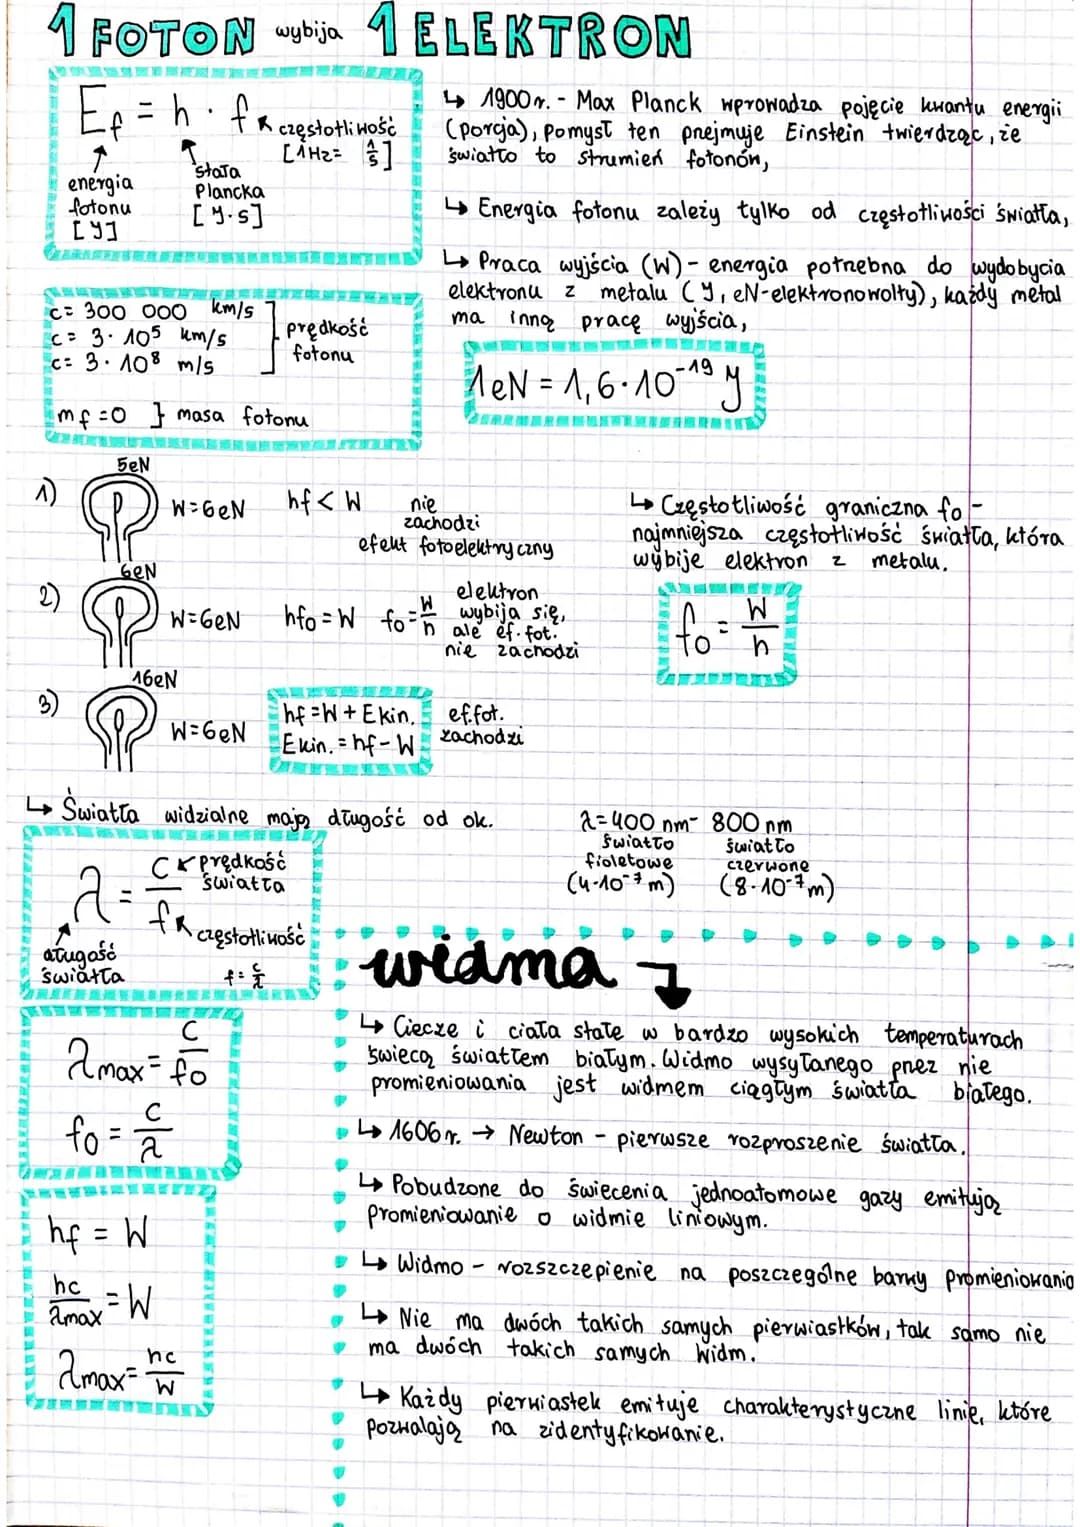 1 FOTON wybija 1 ELEKTRON
Ef = h · f
częstotliwość
[1Hz = 1/s]
stała
Plancka
[J·s]
energia
fotonu
[J]
↳ 1900r. - Max Planck wprowadza pojęcie kwantu energii
(porcja), pomysł ten przejmuje Einstein twierdząc, że
światło to strumień fotonów,
↳ Energia fotonu zależy tylko od częstotliwości światła,
↳ Praca wyjścia (W) - energia potrzebna do wydobycia
elektronu z metalu (J, eV-elektronowolty), każdy metal
ma inną pracę wyjścia,
1eV = 1,6·10⁻¹⁹ J
c= 300 000 km/s
c= 3·10⁵ km/s
c= 3·10⁸ m/s
prędkość
fotonu
mf=0 } masa fotonu
1)
5eV
W=6eV hf < W nie
zachodzi
efekt fotoelektryczny
2)
6eV
W=6eV hf₀=W f₀=W/h elektron
wybija się,
ale ef. fot.
nie zachodzi
3)
16eV
W=6eV
hf=W+Ekin.
Ekin.=hf-W
ef.fot.
zachodzi
↳ Częstotliwość graniczna f₀ -
najmniejsza częstotliwość światła, która
wybije elektron z metalu.
f₀ = W/h
↳ Światła widzialne mają długość od ok. λ=400 nm- 800 nm
światło światło
fioletowe czerwone
(4·10⁻⁷m) (8·10⁻⁷m)
λ = c/f
prędkość
światła
częstotliwość
długość
światła
f=c/λ
λmax = c/f₀
f₀ = c/λ
hf = W
hc/λmax = W
λmax = hc/W
widma
↳ Ciecze i ciała stałe w bardzo wysokich temperaturach
świecą światłem białym. Widmo wysyłanego przez nie
promieniowania jest widmem ciągłym światła białego.
↳ 1606r. → Newton - pierwsze rozproszenie światła.
↳ Pobudzone do świecenia jednoatomowe gazy emitują
promieniowanie o widmie liniowym.
↳ Widmo - rozszczepienie na poszczególne barwy promieniowania
↳ Nie ma dwóch takich samych pierwiastków, tak samo nie
ma dwóch takich samych widm.
↳ Każdy pierwiastek emituje charakterystyczne linie, które
pozwalają na zidentyfikowanie.